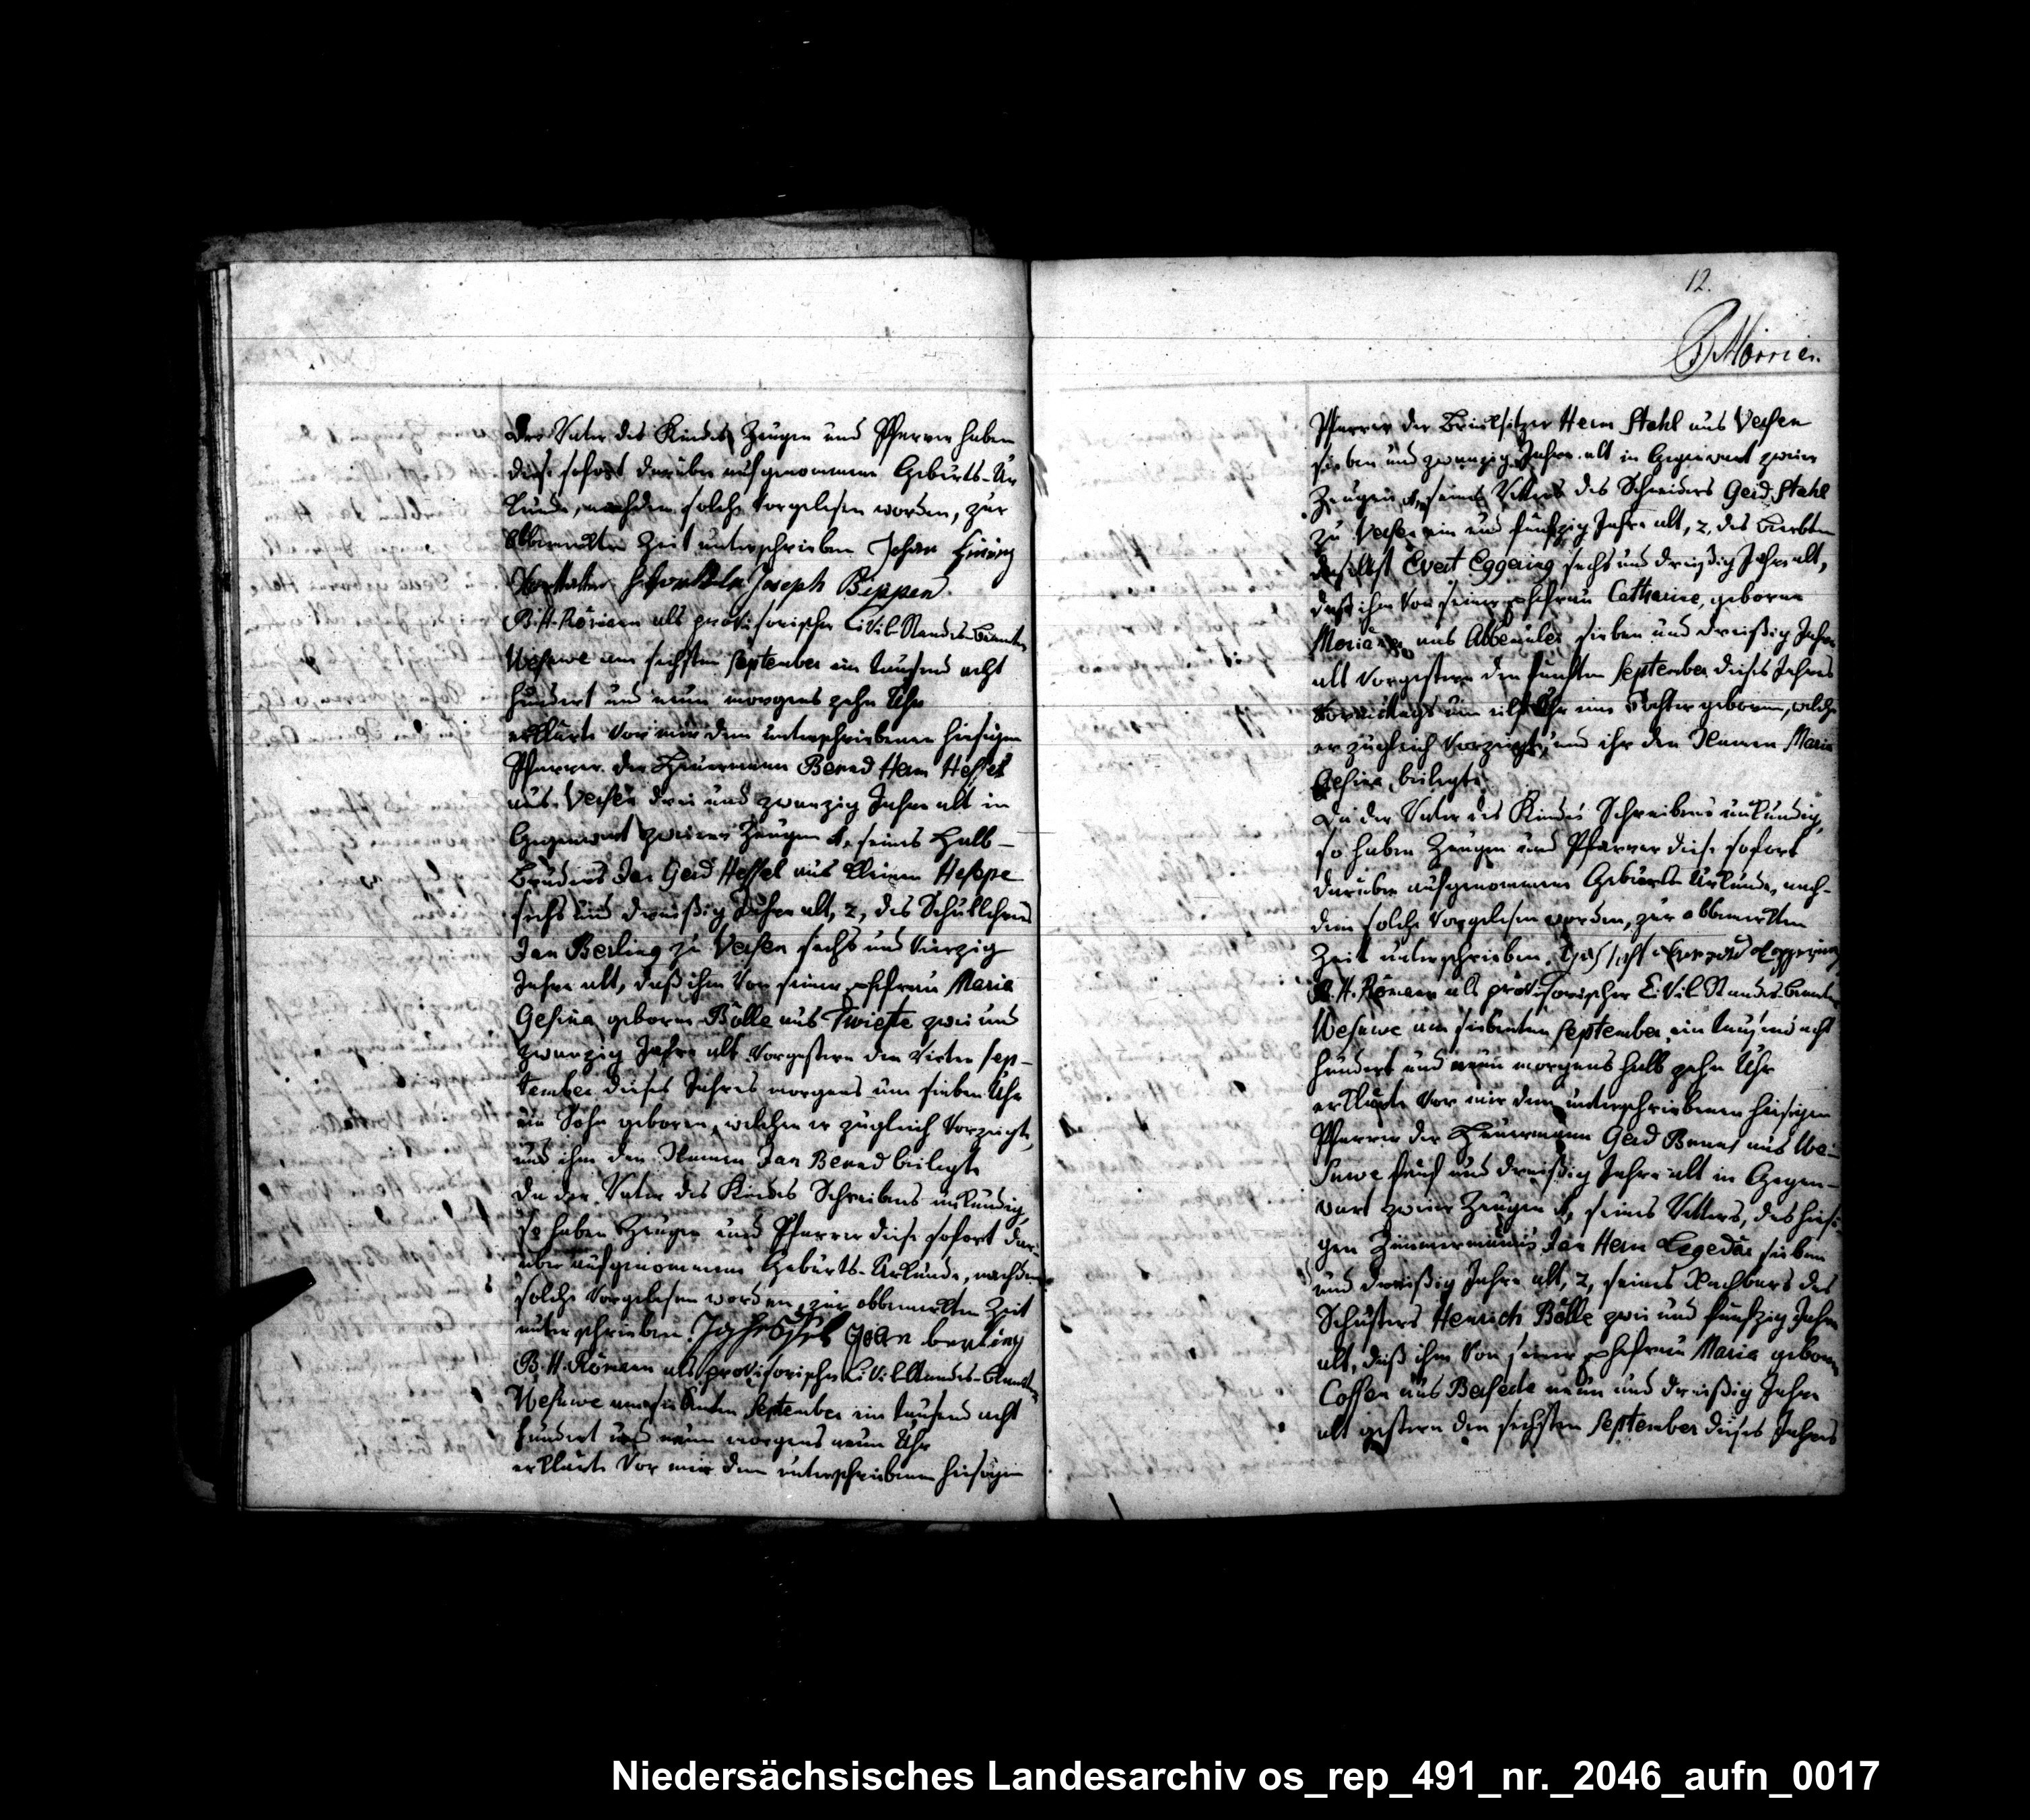 Der Vater des Kindes, Zeugen und Pfarrer haben
diese sofort darüber aufgenommene Geburts-Ur
kunde, nachdem solche vorgelesen worden, zur
obbemerkten Zeit unterschrieben Johan
Joseph Bippen
B. H. Römann als provisorischer Civil-Standes-Beamter
Wesuwe am sechsten September ein tausend acht
hundert und neun morgens zehn Uhr
erklärte vor mir dem unterschriebenen hiesigen
Pfarrer der Heuermann Berend Herm Hessel
aus Versen drei und zwanzig Jahre alt in
Gegenwart zweier Zeugen 1, seines Halb-
Bruders Jan Gerd Hessel aus kleinen Heppe
sechs und dreißig Jahre alt, 2, des Schullehrers
Jan Berling zu Versen sechs und vierzig
Jahre alt, daß ihm von seiner Ehefrau Maria
Gesina geborne Bölle aus Twiste zwei und
zwanzig Jahre alt vorgestern den vierten Sep-
tember dieses Jahres morgens um sieben Uhr
ein Sohn geboren, welchen er zugleich vorzeigte,
und ihm den Namen Jan Berend beilegte
Da der Vater des Kindes Schreibens unkundig,
so haben Zeugen und Pfarrer diese sofort dar-
über aufgenommene Geburts-Urkunde, nachdem
solche vorgelesen worden, zur obbemerkten Zeit
unterschrieben. Joan berling
B. H. Römann als provisorischer Civil-Standes-Beamter
Wesuwe am siebenten September ein tausend acht
hundert und neun morgens neun Uhr
erklärte vor mir dem unterschriebenen hiesigen
12.
Pfarrer der Brinksitzer Herm Stahl aus Versen
sieben und zwanzig Jahre alt in Gegenwart zweier
Zeugen 1, seines Vetters des Schneiders Gerd Stahl
zu Versen ein und fünfzig Jahre alt, 2, des Bierbten
daselbst Evert Eggering sechs und dreißig Jahre alt,
daß ihm von seiner Ehefrau Catharine, geborne
aus sieben und dreißig Jahre
alt vorgestern den fünften September dieses Jahres
vormittags um eilf Uhr eine Tochter geboren, welche
er zugleich vorzeigte, und ihr den Namen Maria
Gesina beilegte.
Da der Vater des Kindes Schreibens unkundig,
so haben Zeugen und Pfarrer diese sofort
darüber aufgenommene Geburts-Urkunde, nach-
dem solche vorgelesen worden, zur obbemerkten
Zeit unterschrieben. Eggering
B. H. Römann als provisorischer Civil-Standes-Beamter
Wesuwe am siebenten September ein tausend acht
hundert und neun morgens halb zehn Uhr
erklärte vor mir dem unterschriebenen hiesigen
Pfarrer der Heuermann Gerd aus We-
suwe fünf und dreißig Jahre alt in Gegen-
wart zweier Zeugen 1, seines Vetters, des hiesi-
gen Zimmermanns Jan Herm sieben
und dreißig Jahre alt, 2, seines Nachbars des
Schusters Henrich Bölle zwei und fünfzig Jahre
alt, daß ihm von seiner Ehefrau Maria geborne
Cossen aus Bersede neun und dreißig Jahre
alt gestern den sechsten September dieses Jahres
Niedersächsisches Landesarchiv os_rep_491_nr._2046_aufn_0017